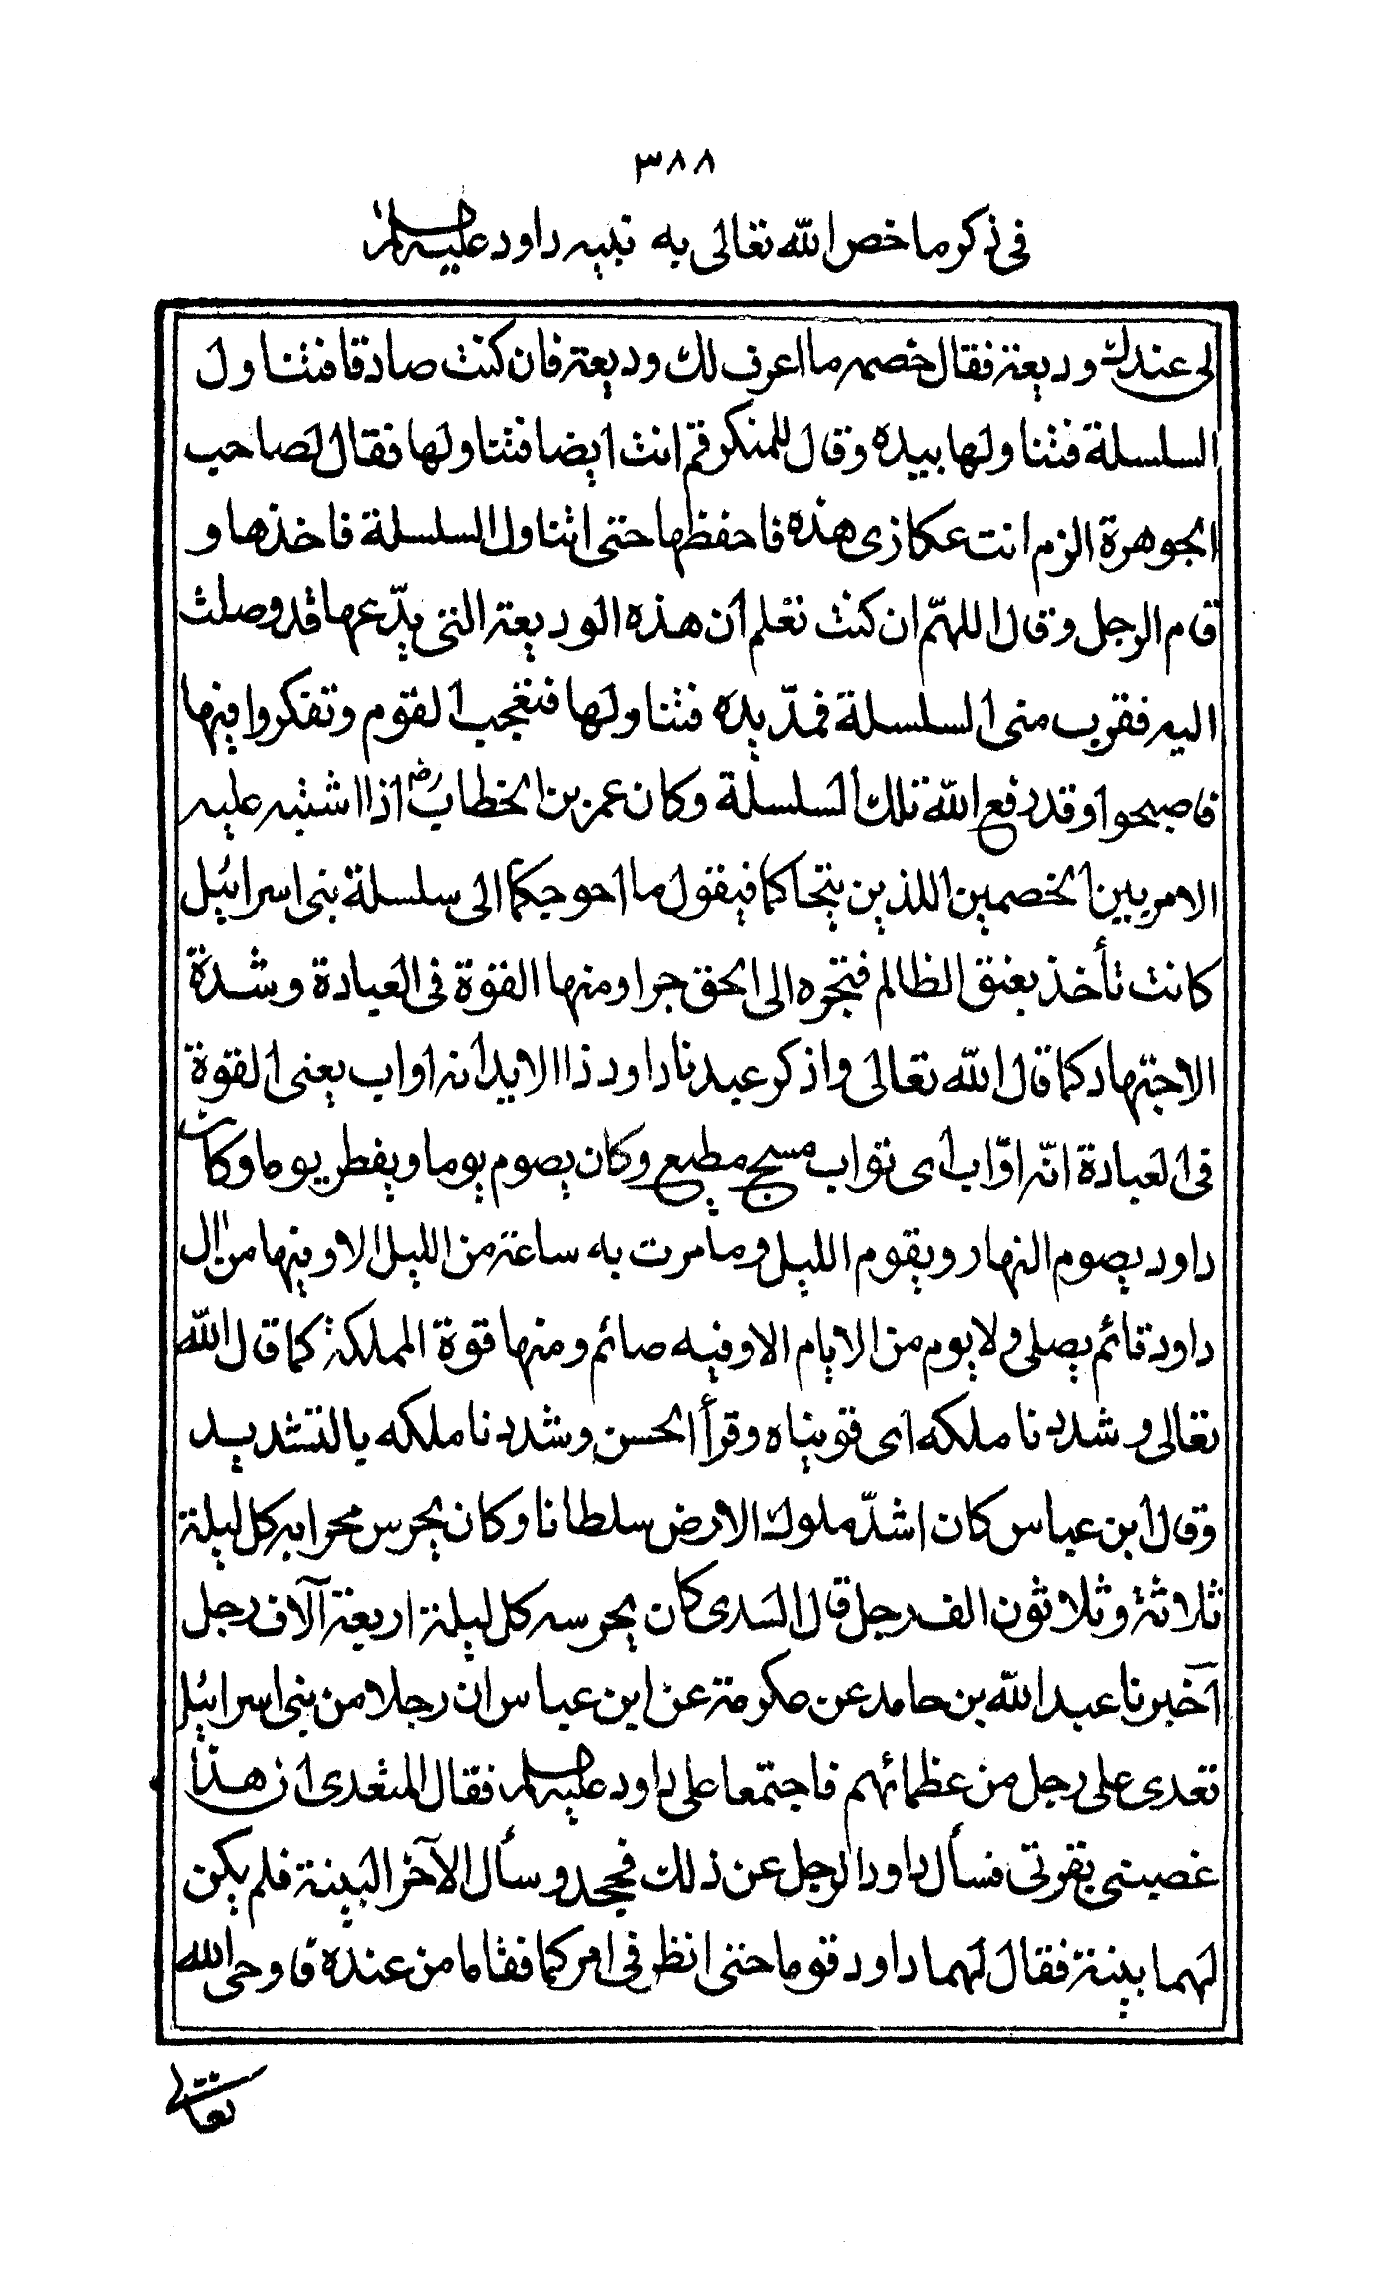 ٣٨٨
فى ذكر ما خص الله تعالى به نبيه داود عليه السلام
لى عندك وديعة فقال خصمه ما اعرف لك وديعة فان كنت صادقا فتناول
السلسلة فتناولها بيده وقال للمنكر قم انت ايضا فتناولها فقال لصاحب
الجوهرة الزم انت عكازى هذه فاحفظها حتى اتناول السلسلة فاخذها و
قام الرجل وقال اللهمّ ان كنت تعلم أن هذه الوديعة التى يدّعيها قد وصلت
اليه فقرب منى السلسلة فمدّ يده فتناولها فتعجب القوم وتفكروا فيها
فاصبحوا وقد رفع الله تلك السلسلة وكان عمر بن الخطاب رضى اذا اشتبه عليه
الامر بين الخصمين اللذين يتحاكما فيقول ما احوجكما الى سلسلة بنى اسرائيل
كانت تأخذ بعنق الظالم فتجره الى الحق جرا ومنها القوة فى العبادة وشدة
الاجتهاد كما قال الله تعالى واذكر عبدنا داود ذا الايد انه اواب يعنى القوة
فى العبادة انّه اوّاب اى تواب مسبح مطيع وكان يصوم يوما ويفطر يوما وكان
داود يصوم النهار ويقوم الليل وما مرت به ساعة من الليل الا وفيها من ال
داود قائم يصلى ولا يوم من الايام الا وفيه صائم ومنها قوة المملكة كما قال الله
تعالى وشددنا ملكه اى قويناه وقرأ الحسن وشددنا ملكه بالتشديد
وقال ابن عباس كان اشدّ ملوك الارض سلطانا وكان يحرس محرابه كل ليلة
ثلاثة وثلاثون الف رجل قال السدى كان يحرسه كل ليلة اربعة آلاف رجل
آخبرنا عبد الله بن حامد عن عكرمة عن ابن عباس ان رجلا من بنى اسرائيل
تعدى على رجل من عظمائهم فاجتمعا على داود عليه السلام فقال المتعدى ان هذا
غصبنى بقرتى فسأل داود الرجل عن ذلك فجحد وسأل الآخر البينة فلم يكن
لهما بينة فقال لهما داود قوما حتى انظر فى امركما فقاما من عنده فاوحى الله
تعالى